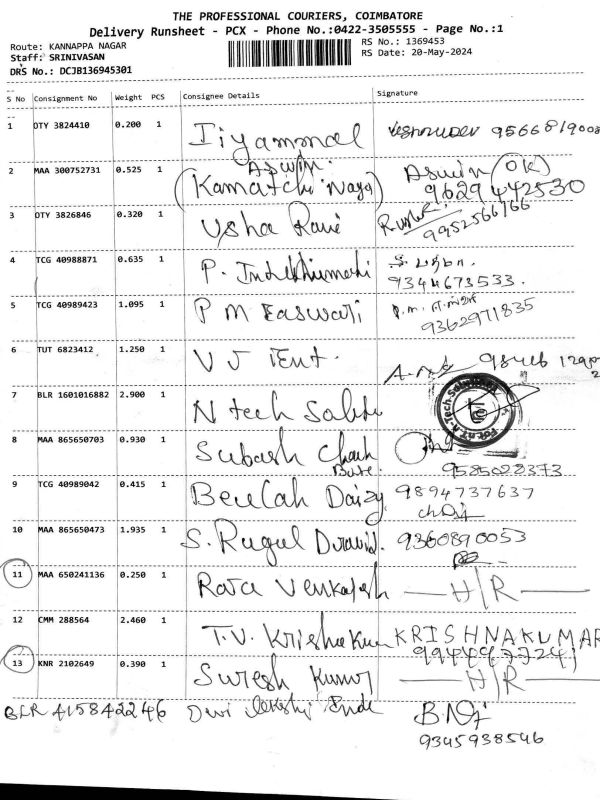 THE PROFESSIONAL COURIERS, COIMBATORE
Delivery Runsheet - PCX - Phone No.:0422-3505555 - Page No.:1
Route: KANNAPPA NAGAR
Staff: SRINIVASAN
DRS No.: DCJB136945301
RS No.: 1369453
RS Date: 20-May-2024
S No Consignment No Weight PCS Consignee Details Signature
1 OTY 3824410 0.200 1 Iiyammal
2 MAA 300752731 0.525 1 Aswin (Kamatchi Naga) Aswin (OK) 9629442530
3 OTY 3826846 0.320 1 Usha Rani 9952566166
4 TCG 40988871 0.635 1 P. 9344673533.
5 TCG 40989423 1.095 1 P M Easwari 9362971835
6 TUT 6823412 1.250 1 V J Ent.
7 BLR 1601016882 2.900 1 N tech
8 MAA 865650703 0.930 1 Subash 9585028373
9 TCG 40989042 0.415 1 Beulah Daizy 9894737637
10 MAA 865650473 1.935 1 S. Ragul Dravid. 9360890053
11 MAA 650241136 0.250 1 Raja Venkatesh — H/R —
12 CMM 288564 2.460 1 T.V. Krishnakumar KRISHNAKUMAR
13 KNR 2102649 0.390 1 Suresh Kumar — H/R —
BLR 415842246 Devi 9345938546